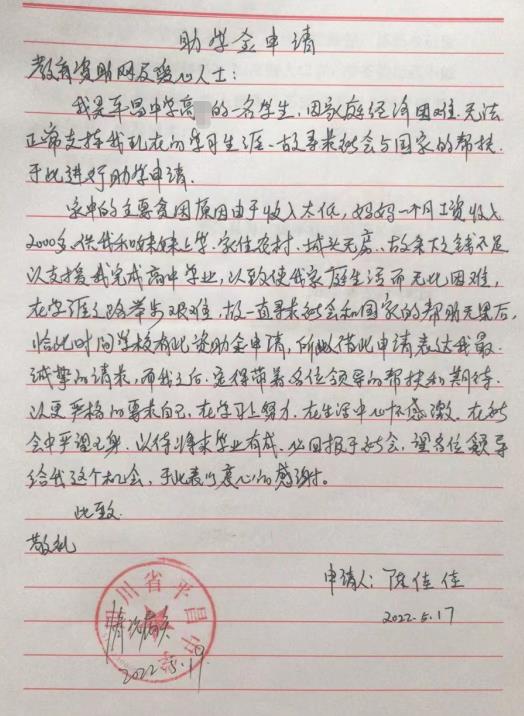 助学金申请
教育资助网及爱心人士：
我是平昌中学高 的一名学生，因家庭经济困难，无法
正常支持我现在的学习生涯，故寻求社会与国家的帮扶，
于此进行助学申请。
家中的主要贫困原因由于收入太低，妈妈一个月工资收入
2000多，供我和妹妹上学，家住农村，城头无房，故余下之钱不足
以支援我完成高中学业，以致使我家庭生活而无比困难，
在学涯之路举步艰难，故一直寻求社会和国家的帮助无果后，
恰此时间学校有此资助金申请，所以借此申请表达我最
诚挚的请求，而我之后，定保带着各位领导的帮扶和期待，
以更严格的要求自己，在学习上努力，在生活中心怀感激，在社
会中严谨己身，以得将来学业有成，必回报于社会，望各位领导
给我这个机会，于此表以衷心的感谢。
此致
敬礼
申请人：陈佳佳
2022.5.17
四川省平昌中学
情况属实
2022.5.19